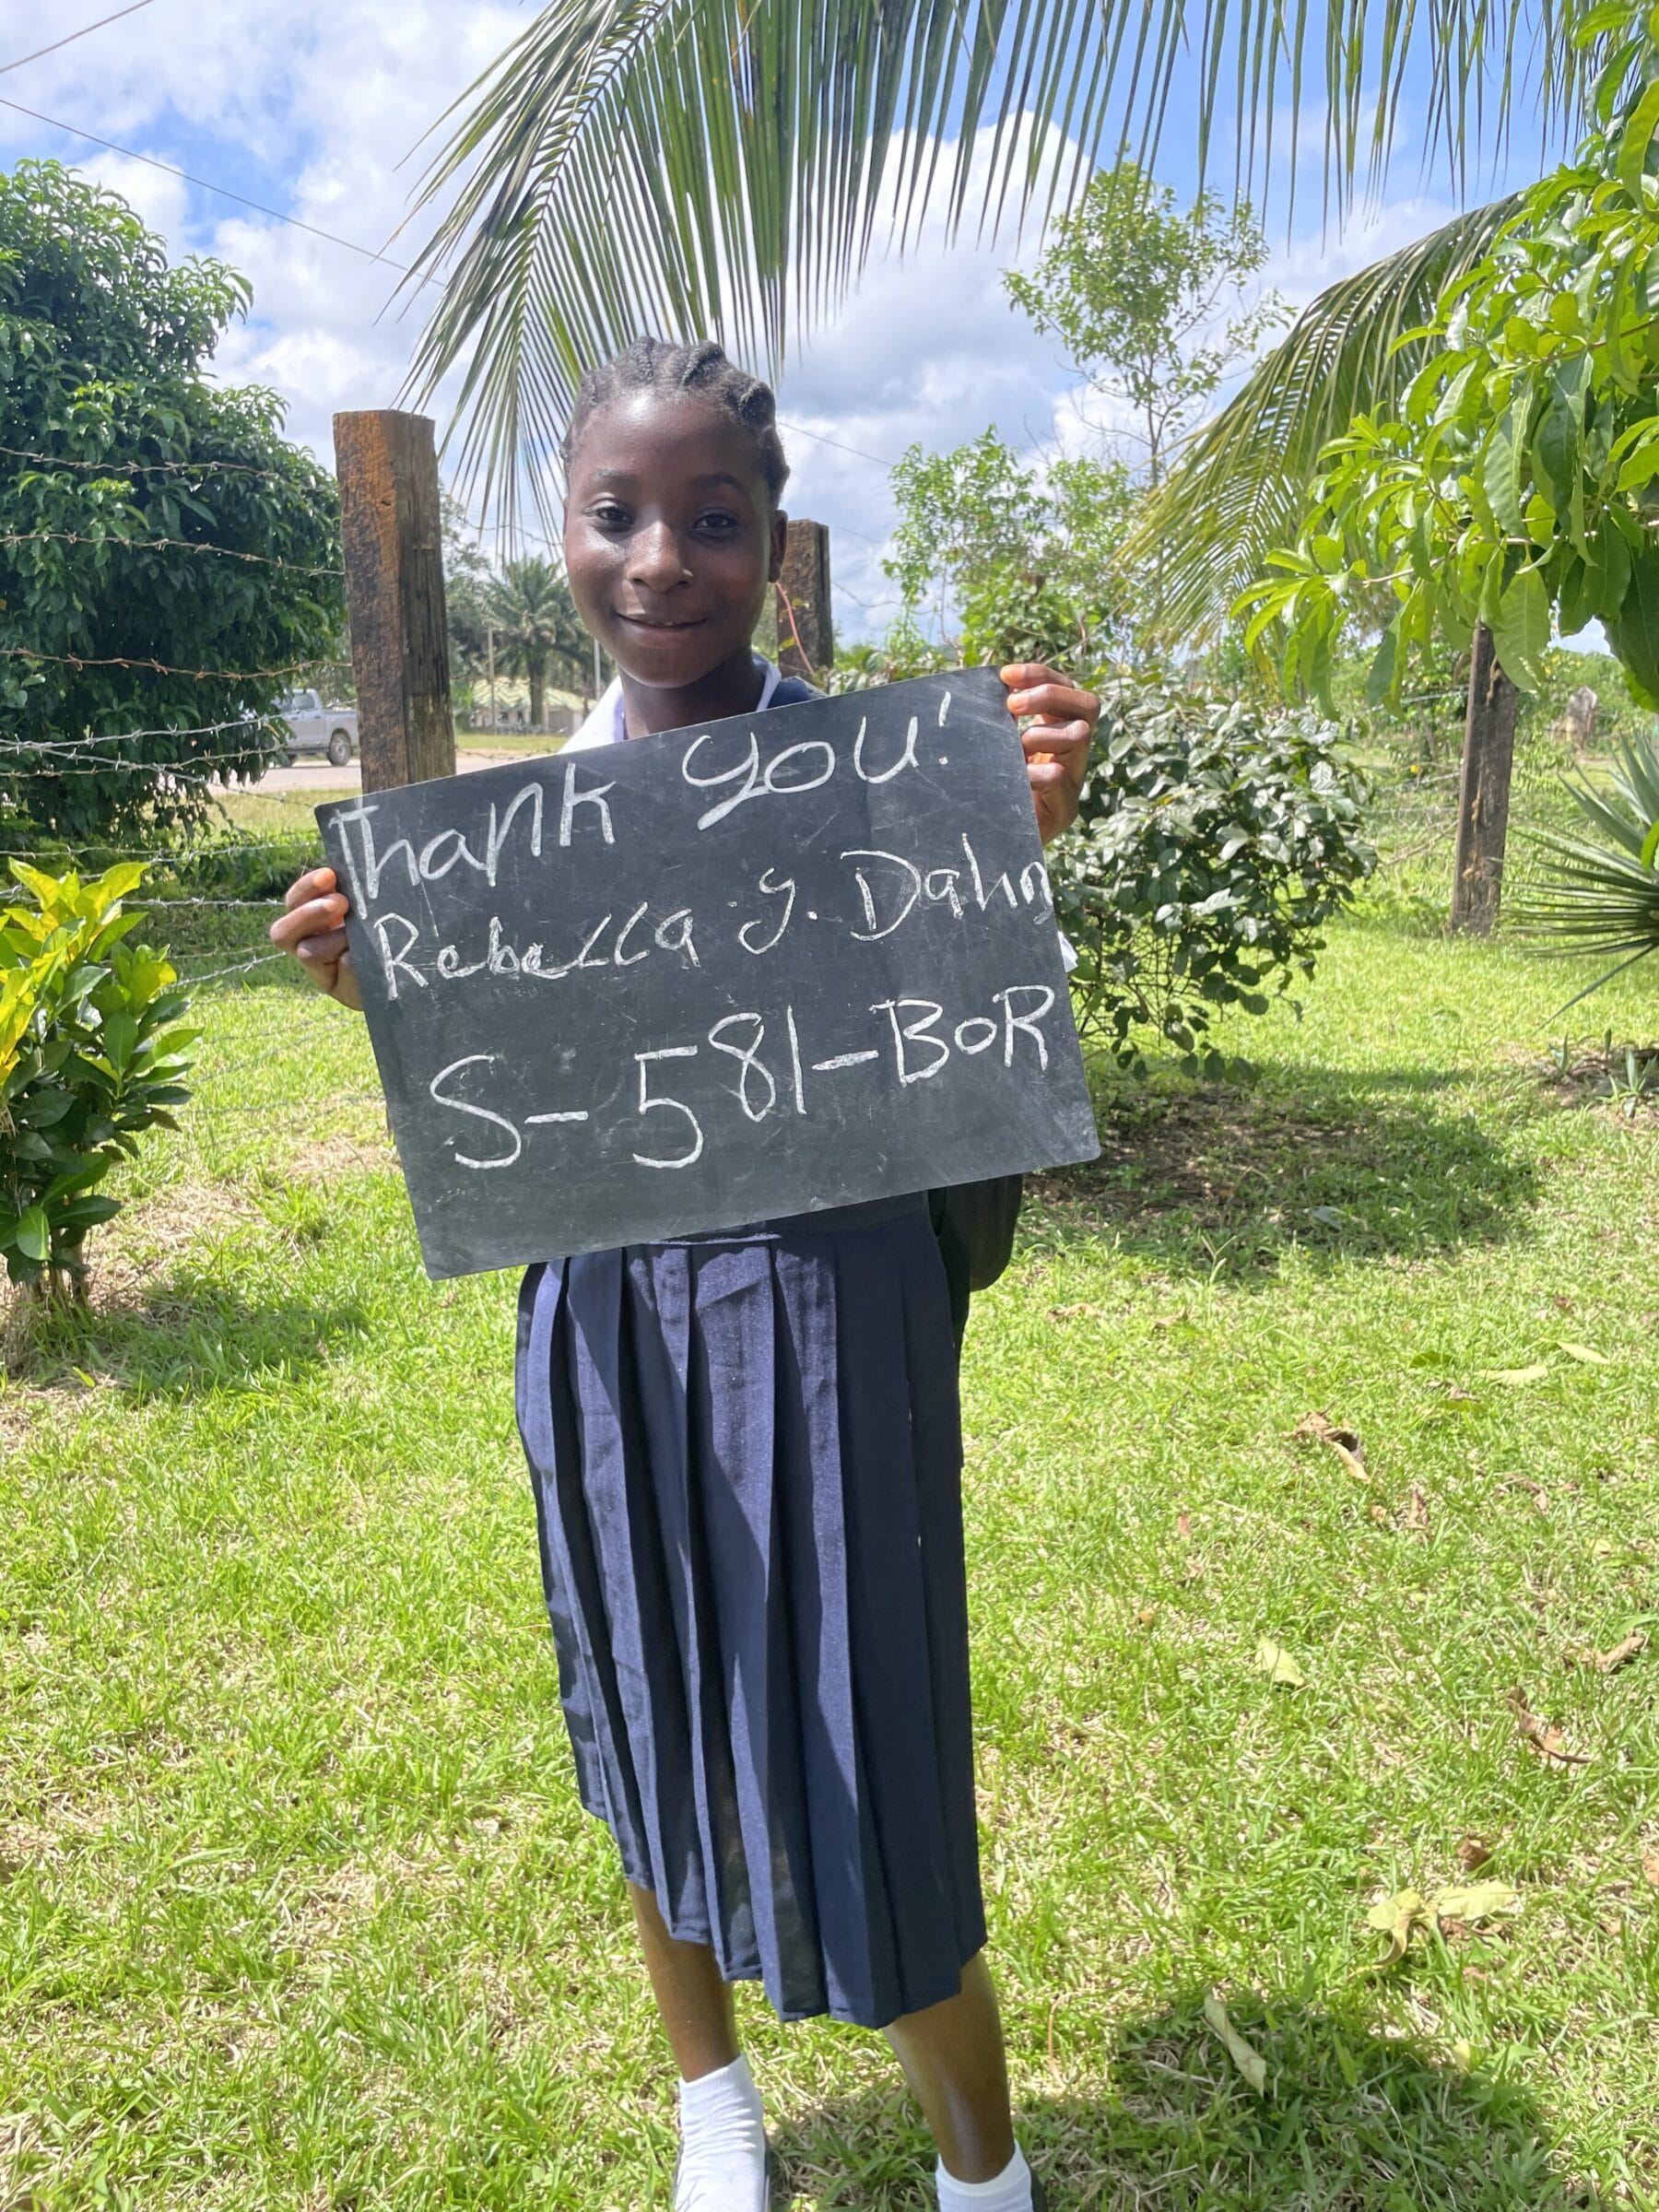 Thank you!
Rebecca y. Dahn
S-581-BOR